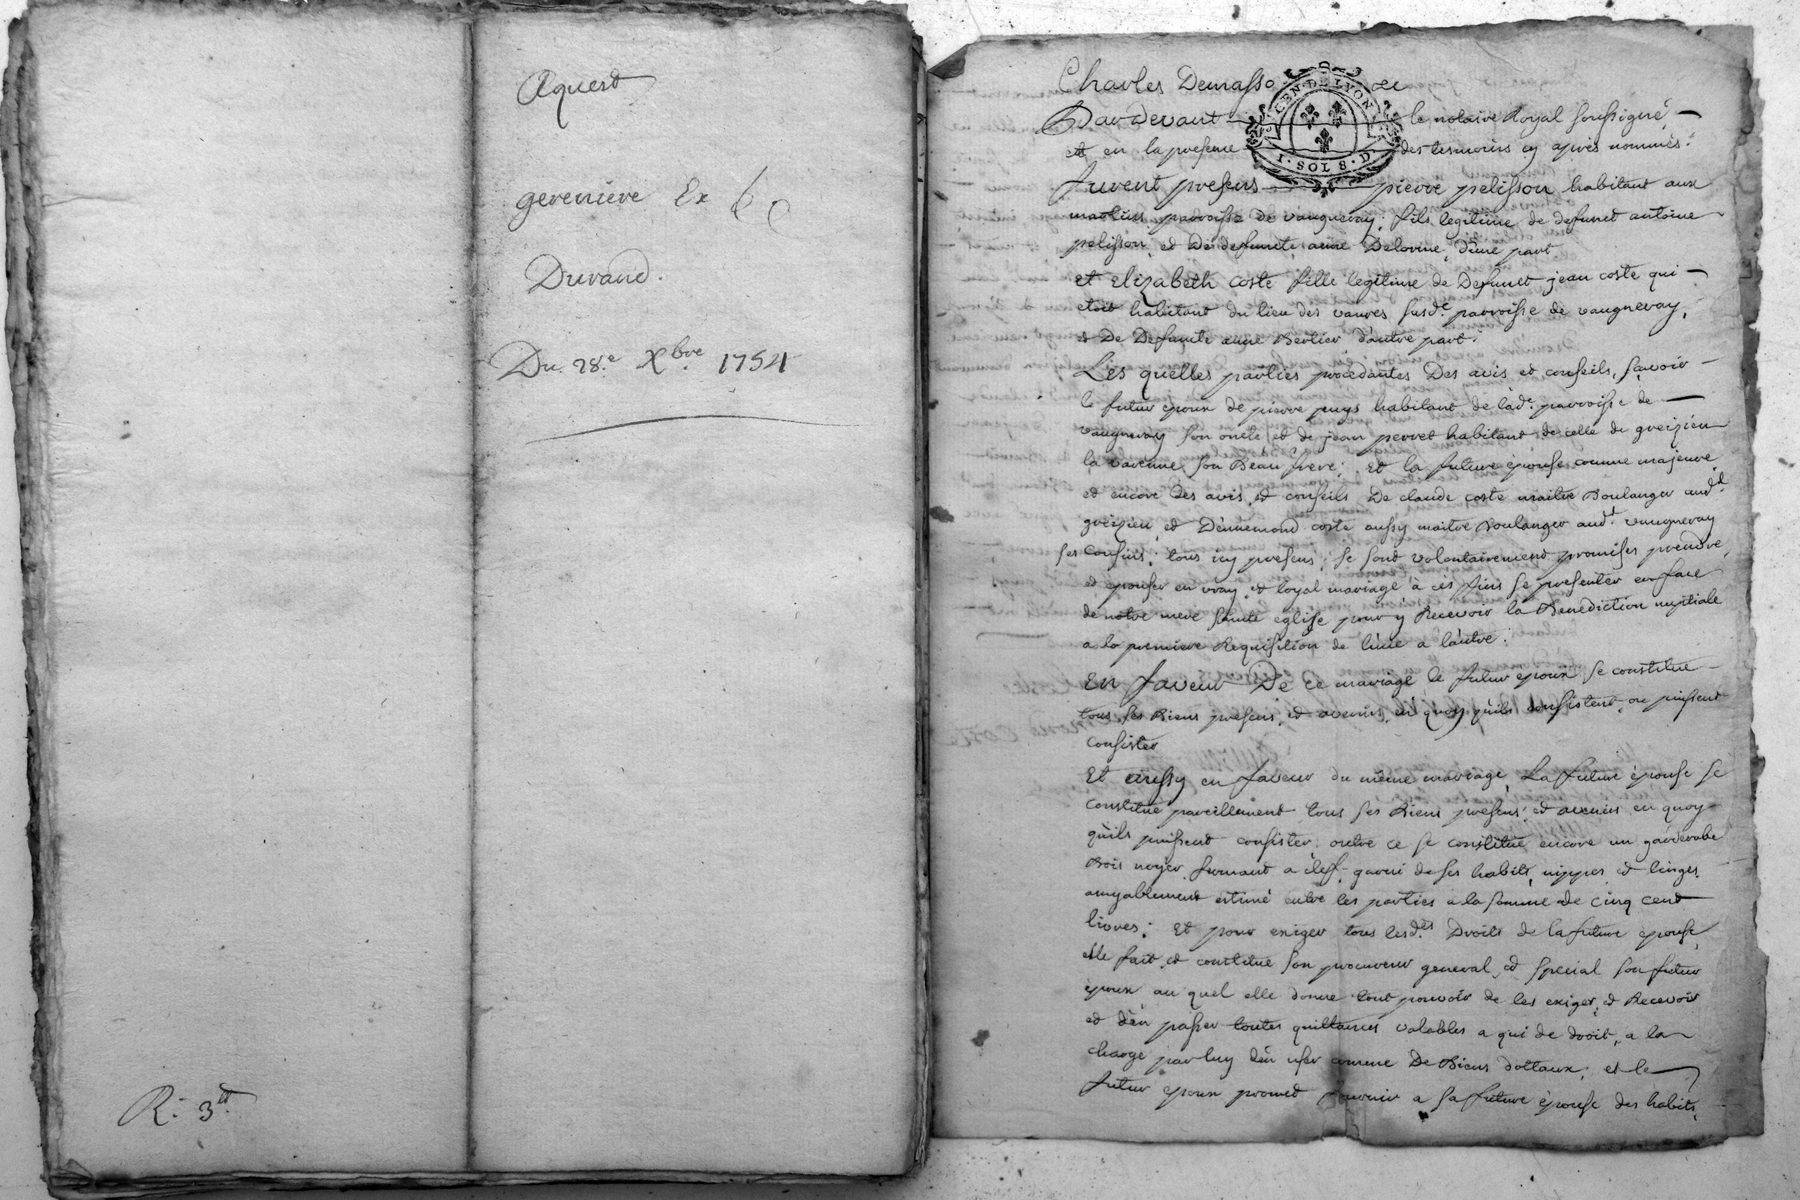 Aquest
gereniere Ex
Durand.
Du. 28.e Xbre. 1754
R: 3
Charles Demasso &c
GEN. DE LYON
I. SOL 8. D.
Pardevant le notaire Royal soussigné,
et en la presence des tesmoins cy apres nommés.
furent presens pierre pelisson habitant aux
martins parroisse de vaugneray, fils legitime de defunct antoine
pelisson, et de defuncte anne Delorme, d'une part
et elizabeth coste fille legitime de Defunct jean coste qui
etoit habitant du lieu des vanres susde parroisse de vaugneray,
& De Defuncte anne Berlier d'autre part.
Les quelles parties procedantes Des avis et conseils, sçavoir
le futur epoux de pierre puys habitant de lade. parroisse de
vaugneray son oncle et de jean perret habitant de celle de greizieu
la varenne son Beau frere; et la future épouse comme majeure,
et encore des avis, et conseils De claude coste maitre Boulanger audt.
greizieu, et D'ennemond coste aussy maitre Boulanger audt. vaugneray
ses cousins; tous icy presens; se sont volontairement promises prendre,
et epouser en vray, et loyal mariage à ces fins se presenter en face
de notre mere sainte eglise pour y Recevoir la Benediction nuptiale
a la premiere Requisition de l'une a l'autre.
En faveur De ce mariage le futur epoux se constitue
tous ses Biens presens, et avenirs, en quoy qu'ils consistent, ou puissent
consister
Et aussy en faveur du même mariage, La future épouse se
constitue pareillement tous ses Biens presens, et avenir en quoy
qu'ils puissent consister; outre ce se constitue encore un garderobe
Bois noyer fermant a clef, garni de ses habits, nippes, et linges
amyablement estimé entre les parties a la somme de cinq cent
livres; Et pour exiger tous lesdes. Droits de la future épouse,
elle fait, et constitue son procureur general, et special son futur
epoux, au quel elle donne tout pouvoir de les exiger, et Recevoir
et d'en passer toutes quittances valables a qui de droit, a la
charge par luy d'en user comme De Biens dottaux; et le
futur epoux promet fournir a sa future épouse des habits,